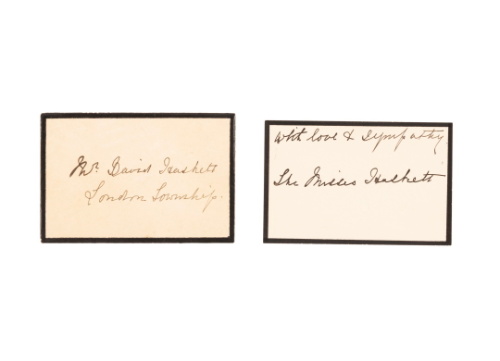 Mr. David Haskett
London Township.
With love & Sympathy
The Misses Haskett